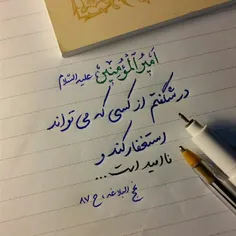 امیرُالمؤمنین علیه‌السلام
در شگفتم از کسی که می تواند
استغفار کند و
ناامید است...
نهج البلاغه ، ح ۸۷